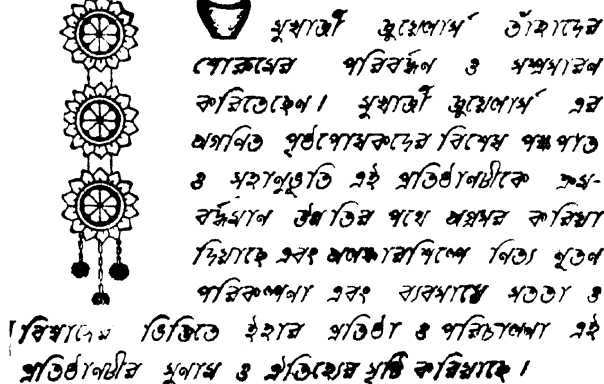 মুখার্জী জুয়েলার্স তাঁহাদের
শোরুমের পরিবর্দ্ধন ও সম্প্রসারণ
করিতেছেন। মুখার্জী জুয়েলার্স এর
অগণিত পৃষ্ঠপোষকদের বিশেষ পক্ষপাত
ও সহানুভূতি এই প্রতিষ্ঠানটীকে ক্রম-
বর্দ্ধমান উন্নতির পথে অগ্রসর করিয়া
দিয়াছে এবং অলঙ্কারশিল্পে নিত্য নূতন
পরিকল্পনা এবং ব্যবসায়ে সততা ও
বিশ্বাসের ভিত্তিতে ইহার প্রতিষ্ঠা ও পরিচালনা এই
প্রতিষ্ঠানটীর সুনাম ও ঐতিহ্যের সৃষ্টি করিয়াছে।